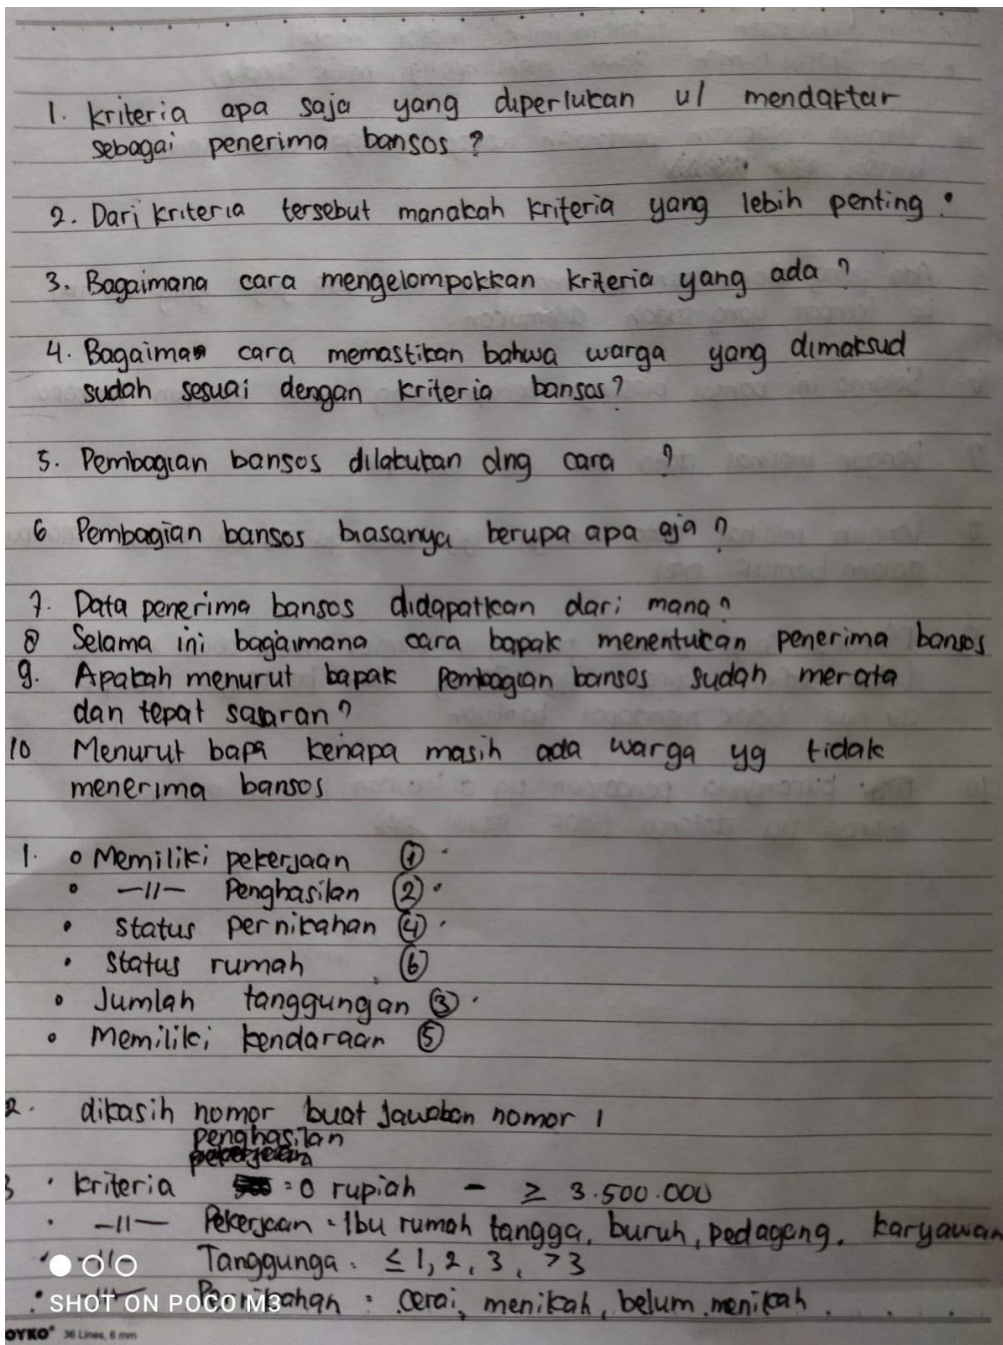 1. kriteria apa saja yang diperlukan u/ mendaftar
sebagai penerima bansos ?
2. Dari kriteria tersebut manakah kriteria yang lebih penting ?
3. Bagaimana cara mengelompokkan kriteria yang ada ?
4. Bagaiman cara memastikan bahwa warga yang dimaksud
sudah sesuai dengan kriteria bansos ?
5. Pembagian bansos dilakukan dng cara ?
6 Pembagian bansos biasanya berupa apa aja ?
7. Data penerima bansos didapatkan dari mana ?
8 Selama ini bagaimana cara bapak menentukan penerima bansos
9. Apakah menurut bapak pembagian bansos sudah merata
dan tepat sasaran ?
10 Menurut bapa kenapa masih ada warga yg tidak
menerima bansos
1. o Memiliki pekerjaan ①
• —||— Penghasilan ②
• Status pernikahan ④
• Status rumah ⑥
• Jumlah tanggungan ③
• Memiliki kendaraan ⑤
2. dikasih nomor buat jawaban nomor 1
penghasilan
3 • kriteria = 0 rupiah - ≥ 3.500.000
• —||— Pekerjaan = Ibu rumah tangga, buruh, pedagang, karyawan
• —||— Tanggunga : ≤ 1, 2, 3, >3
• —||— Pernikahan = cerai, menikah, belum menikah
SHOT ON POCO M3
OYKO 36 Lines, 6 mm